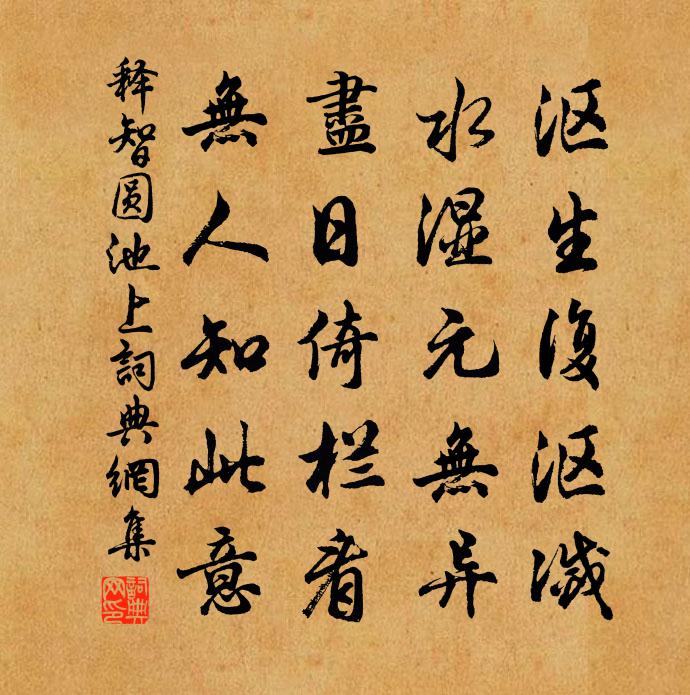 沤生復沤滅
水湿元無异
盡日倚栏看
無人知此意
释智圆池上詞典網集
詞典網印